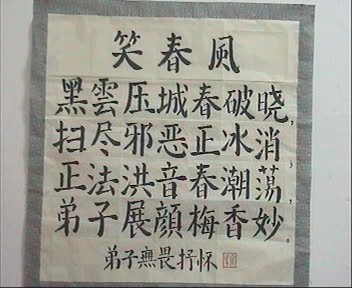 笑春風
黑雲压城春破晓，
扫尽邪恶正冰消，
正法洪音春潮荡，
弟子展顔梅香妙。
弟子無畏抒怀